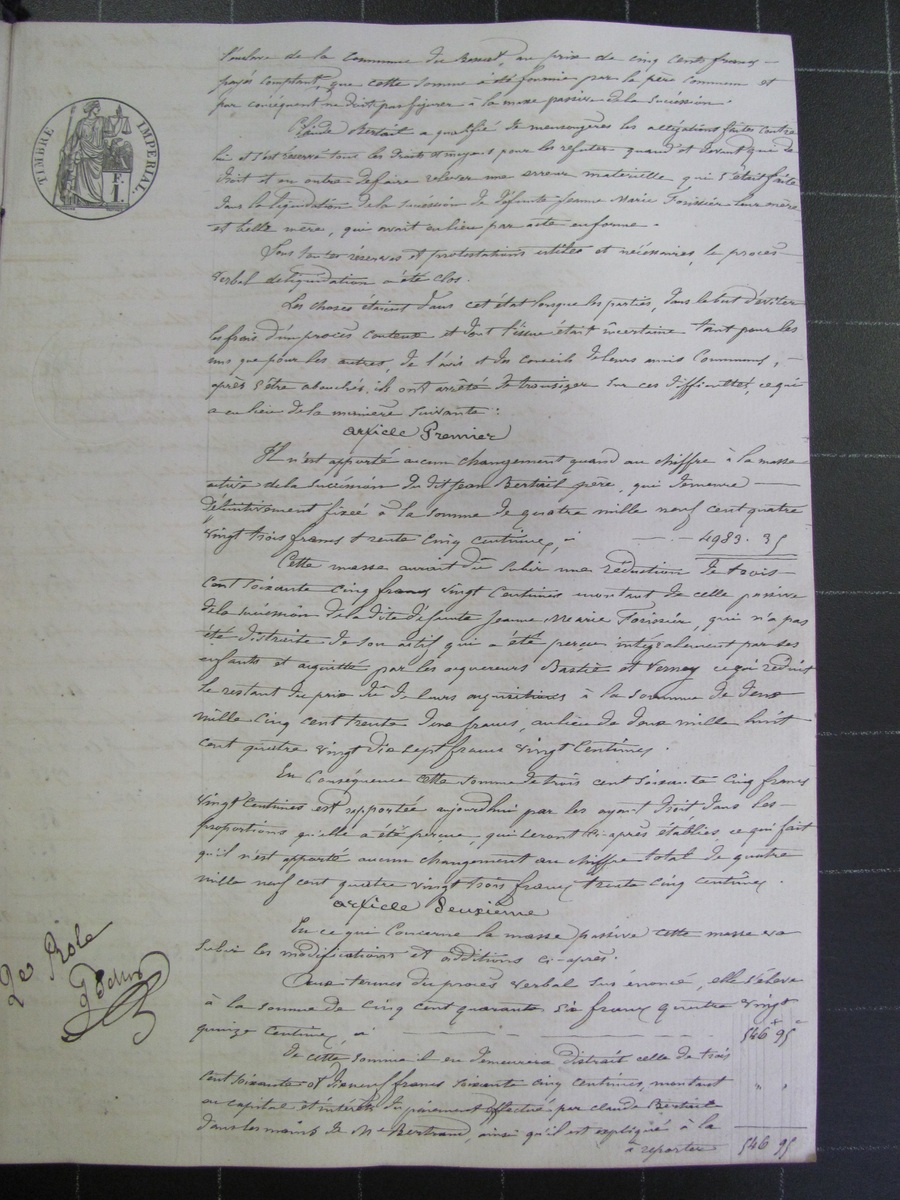 de la commune du , au prix de cinq cents francs
payés comptant, que cette somme a été fournie par le père commun et
par conséquent ne doit pas figurer à la masse passive de la succession.
Claude Bertail a qualifié de mensongères les allégations faites contre
lui et s'est réservé tous les droits et moyens pour les refuter quand et devant que de
droit et en outre de faire relever une erreur matérielle qui s'était faite
dans la liquidation de la succession de défunte Jeanne Marie Forissier leur mère
et belle mère, qui avait eu lieu par acte en forme.
Sous toutes réserves et protestations utiles et nécessaires, le procès
verbal de liquidation a été clos.
Les choses étaient dans cet état lorsque les parties, dans le but d'éviter
les frais d'un procès couteux et dont l'issue était incertaine tant pour les
uns que pour les autres, de l'avis et des conseils de leurs amis communs,
après s'être abouchés, ils ont arrêté de transiger sur ces difficultés, ce qui
a eu lieu de la manière suivante :
article Premier
Il n'est apporté aucun changement quand au chiffre à la masse
active de la succession du dit Jean Bertail père, qui demeure
définitivement fixée à la somme de quatre mille neuf cent quatre
vingt trois francs trente cinq centimes, ci 4983. 35
Cette masse aurait dû subir une réduction de trois
cent soixante cinq francs vingt centimes montant de celle passive
de la succession de la dite défunte Jeanne Marie Forissier, qui n'a pas
été distraite de son actif qui a été perçu intégralement par ses
enfants et acquitté par les acquereurs Bastié et Verney ce qui réduit
le restant du prix dû de leurs acquisitions à la somme de deux
mille cinq cent trente deux francs, au lieu de deux mille huit
cent quatre vingt dix sept francs vingt centimes.
En conséquence cette somme de trois cent soixante cinq francs
vingt centimes est rapportée aujourd'hui par les ayant droit dans les
proportions qu'elle a été perçue, qui seront ci-après établies, ce qui fait
qu'il n'est apporté aucun changement au chiffre total de quatre
mille neuf cent quatre vingt trois francs trente cinq centimes.
article deuxième
En ce qui concerne la masse passive cette masse va
subir les modifications et additions ci-après.
Aux termes du procès verbal sus énoncé, elle s'élève
à la somme de cinq cent quarante six francs quatre vingt
quinze centimes, ci 546 95
De cette somme il en demeurera distrait celle de trois
cent soixante et dix neuf francs soixante cinq centimes, montant
en capital et intérêts du paiement effectué par claude Bertail
dans les mains de Me Bertrand, ainsi qu'il est expliqué à la
à reporter 546 95
TIMBRE IMPERIAL
F.
1.
2e Role